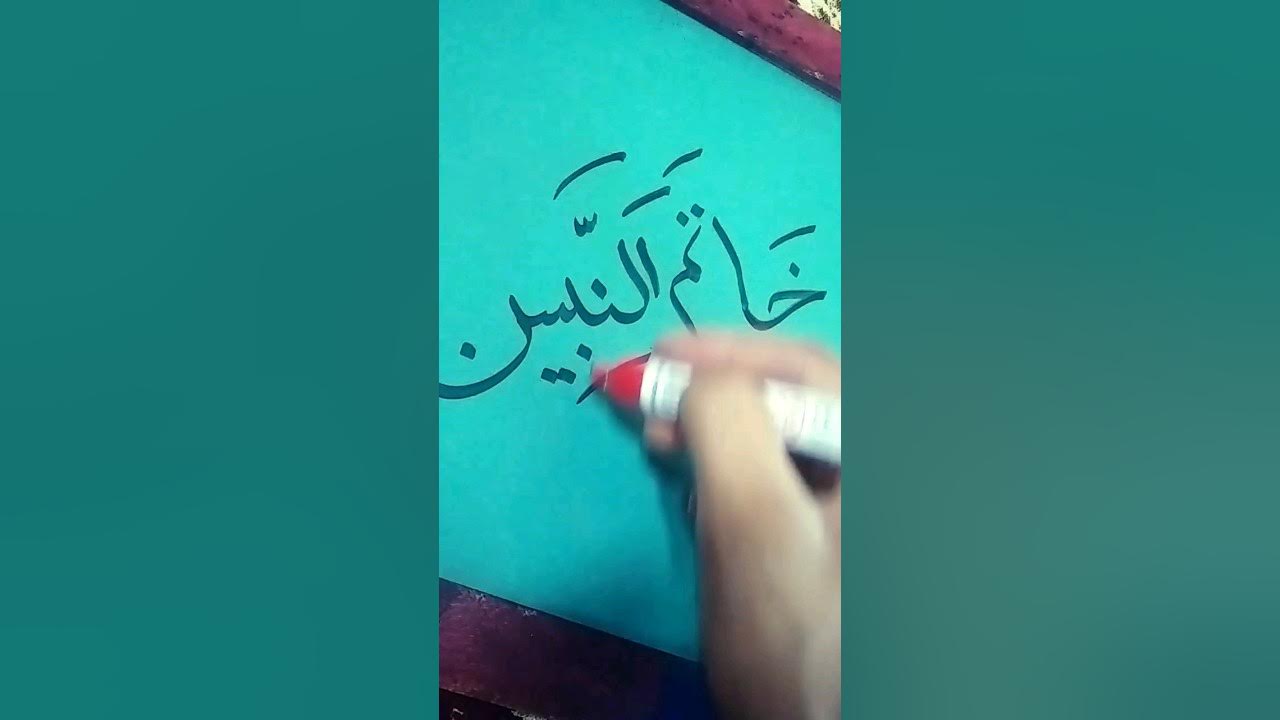 خَاتَمَ النَّبِيّن